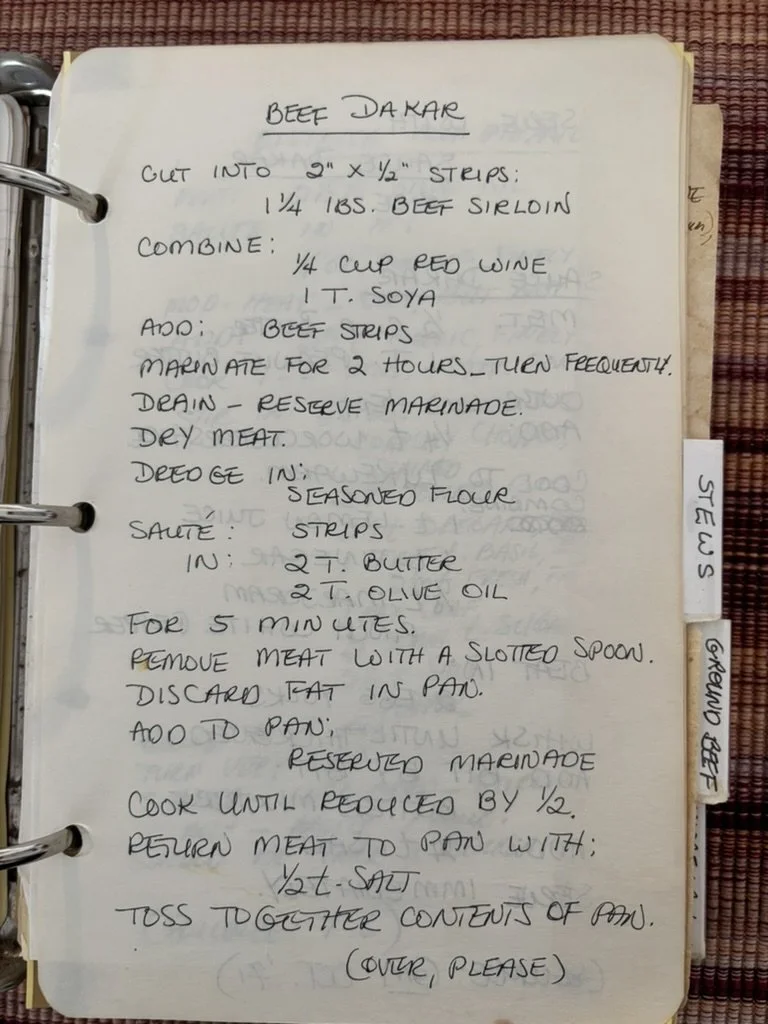 BEEF DAKAR
CUT INTO 2" X ½" STRIPS:
1¼ lBS. BEEF SIRLOIN
COMBINE:
¼ CUP RED WINE
1 T. SOYA
ADD: BEEF STRIPS
MARINATE FOR 2 HOURS_TURN FREQUENTLY.
DRAIN - RESERVE MARINADE.
DRY MEAT.
DREDGE IN:
SEASONED FLOUR
SAUTÉ: STRIPS
IN: 2 T. BUTTER
2 T. OLIVE OIL
FOR 5 MINUTES.
REMOVE MEAT WITH A SLOTTED SPOON.
DISCARD FAT IN PAN.
ADD TO PAN:
RESERVED MARINADE
COOK UNTIL REDUCED BY ½.
RETURN MEAT TO PAN WITH:
½ t. SALT
TOSS TOGETHER CONTENTS OF PAN.
(OVER, PLEASE)
STEWS
GROUND BEEF